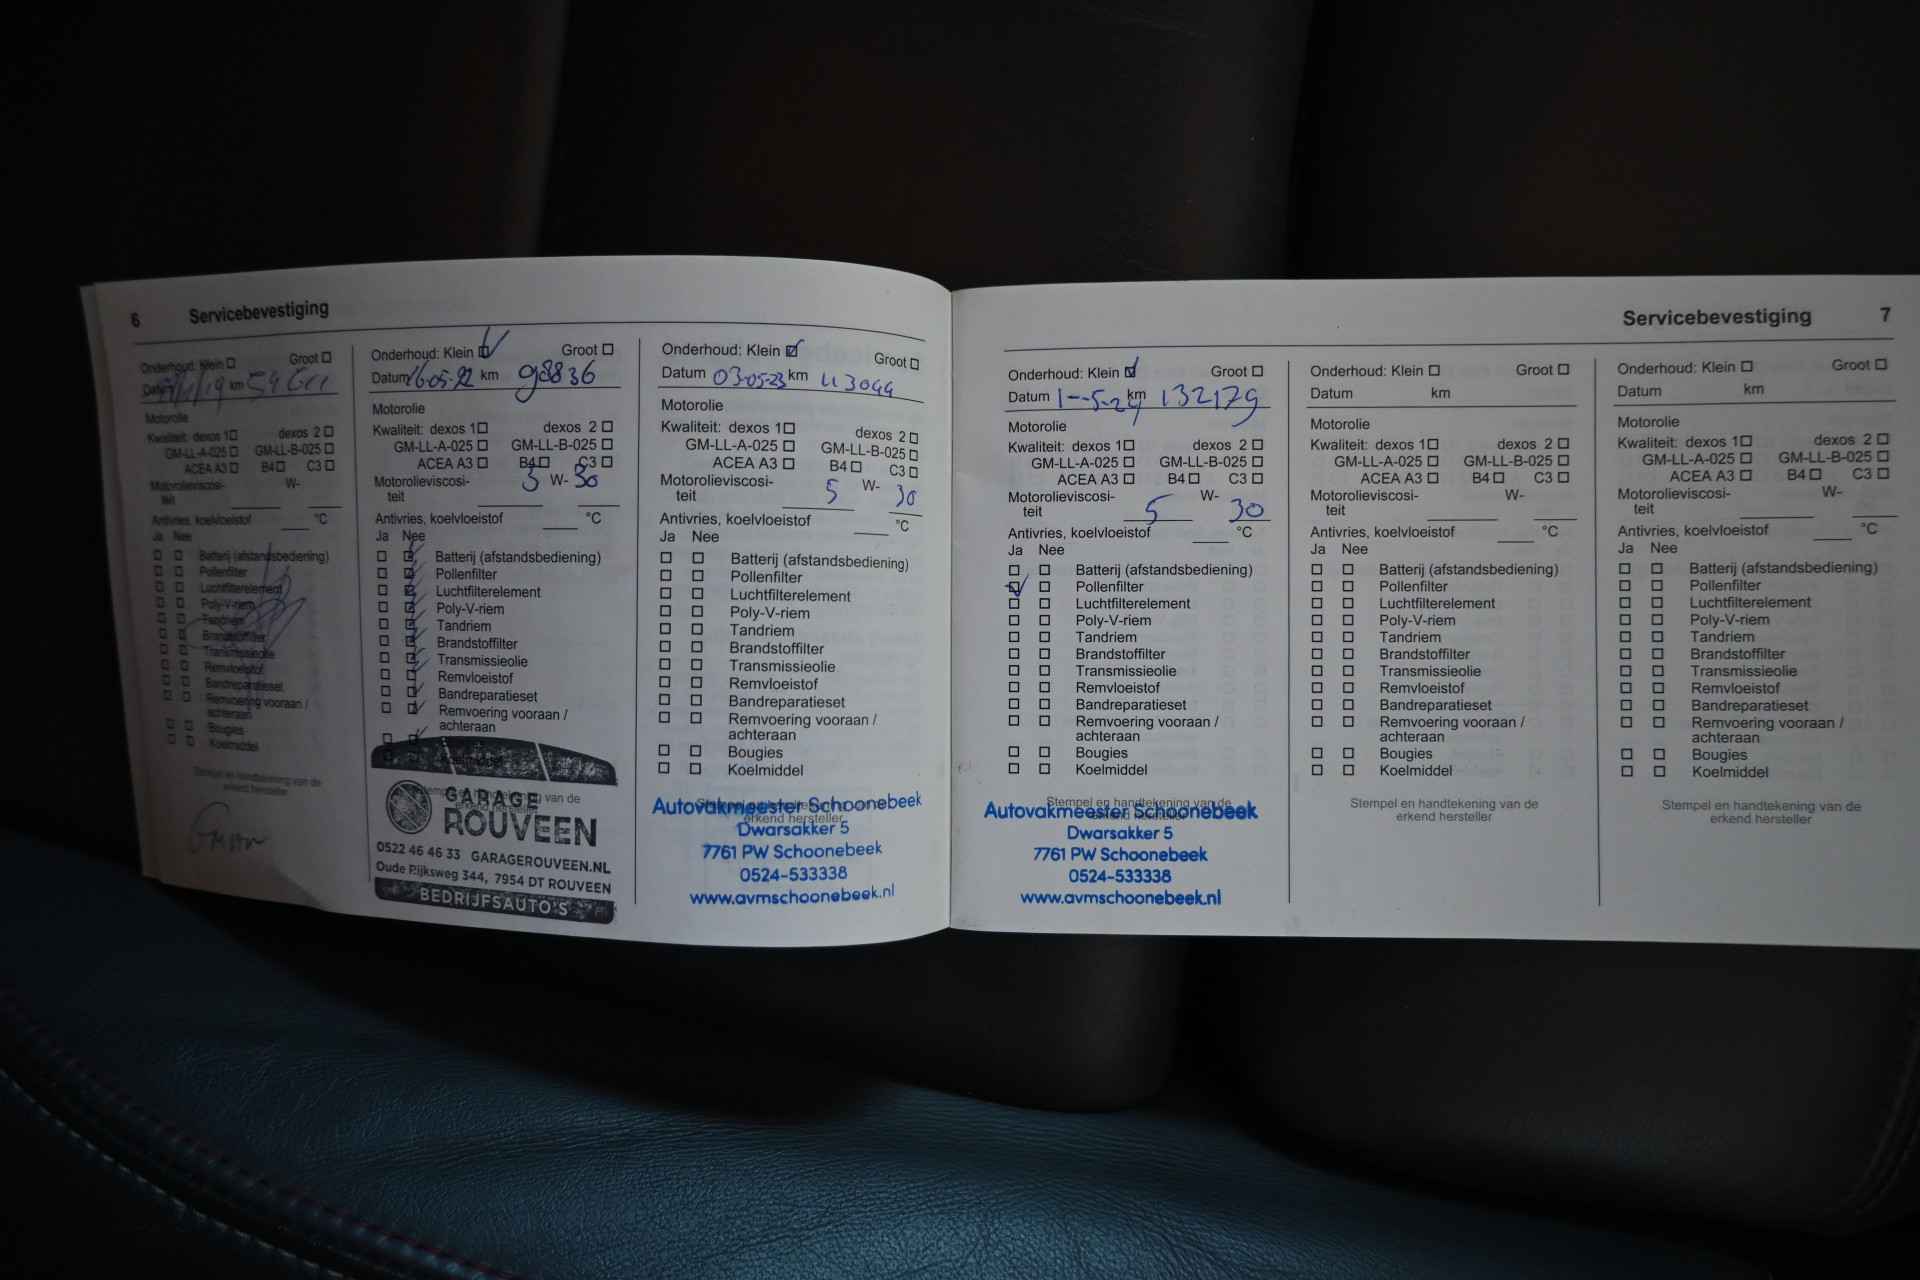 6 Servicebevestiging
Onderhoud: Klein Groot
Datum km
Motorolie
Kwaliteit: dexos 1 dexos 2
GM-LL-A-025 GM-LL-B-025
ACEA A3 B4 C3
Motorolieviscosi-
teit W-
Antivries, koelvloeistof °C
Ja Nee
Batterij (afstandsbediening)
Pollenfilter
Luchtfilterelement
Poly-V-riem
Tandriem
Brandstoffilter
Transmissieolie
Remvloeistof
Bandreparatieset
Remvoering vooraan /
achteraan
Bougies
Koelmiddel
Stempel en handtekening van de
erkend hersteller
Onderhoud: Klein Groot
Datum 16-05-22 km 98836
Motorolie
Kwaliteit: dexos 1 dexos 2
GM-LL-A-025 GM-LL-B-025
ACEA A3 B4 C3
Motorolieviscosi-
teit 5 W- 30
Antivries, koelvloeistof °C
Ja Nee
Batterij (afstandsbediening)
Pollenfilter
Luchtfilterelement
Poly-V-riem
Tandriem
Brandstoffilter
Transmissieolie
Remvloeistof
Bandreparatieset
Remvoering vooraan /
achteraan
Koelmiddel
Stempel en handtekening van de
erkend hersteller
GARAGE
ROUVEEN
0522 46 46 33 GARAGEROUVEEN.NL
Oude Rijksweg 344, 7954 DT ROUVEEN
BEDRIJFSAUTO'S
Onderhoud: Klein Groot
Datum 03-05-23 km 113044
Motorolie
Kwaliteit: dexos 1 dexos 2
GM-LL-A-025 GM-LL-B-025
ACEA A3 B4 C3
Motorolieviscosi-
teit 5 W- 30
Antivries, koelvloeistof °C
Ja Nee
Batterij (afstandsbediening)
Pollenfilter
Luchtfilterelement
Poly-V-riem
Tandriem
Brandstoffilter
Transmissieolie
Remvloeistof
Bandreparatieset
Remvoering vooraan /
achteraan
Bougies
Koelmiddel
Stempel en handtekening van de
erkend hersteller
Autovakmeester Schoonebeek
Dwarsakker 5
7761 PW Schoonebeek
0524-533338
www.avmschoonebeek.nl
Servicebevestiging 7
Onderhoud: Klein Groot
Datum 1-5-24 km 132179
Motorolie
Kwaliteit: dexos 1 dexos 2
GM-LL-A-025 GM-LL-B-025
ACEA A3 B4 C3
Motorolieviscosi-
teit 5 W- 30
Antivries, koelvloeistof °C
Ja Nee
Batterij (afstandsbediening)
Pollenfilter
Luchtfilterelement
Poly-V-riem
Tandriem
Brandstoffilter
Transmissieolie
Remvloeistof
Bandreparatieset
Remvoering vooraan /
achteraan
Bougies
Koelmiddel
Stempel en handtekening van de
erkend hersteller
Autovakmeester Schoonebeek
Dwarsakker 5
7761 PW Schoonebeek
0524-533338
www.avmschoonebeek.nl
Onderhoud: Klein Groot
Datum km
Motorolie
Kwaliteit: dexos 1 dexos 2
GM-LL-A-025 GM-LL-B-025
ACEA A3 B4 C3
Motorolieviscosi-
teit W-
Antivries, koelvloeistof °C
Ja Nee
Batterij (afstandsbediening)
Pollenfilter
Luchtfilterelement
Poly-V-riem
Tandriem
Brandstoffilter
Transmissieolie
Remvloeistof
Bandreparatieset
Remvoering vooraan /
achteraan
Bougies
Koelmiddel
Stempel en handtekening van de
erkend hersteller
Onderhoud: Klein Groot
Datum km
Motorolie
Kwaliteit: dexos 1 dexos 2
GM-LL-A-025 GM-LL-B-025
ACEA A3 B4 C3
Motorolieviscosi-
teit W-
Antivries, koelvloeistof °C
Ja Nee
Batterij (afstandsbediening)
Pollenfilter
Luchtfilterelement
Poly-V-riem
Tandriem
Brandstoffilter
Transmissieolie
Remvloeistof
Bandreparatieset
Remvoering vooraan /
achteraan
Bougies
Koelmiddel
Stempel en handtekening van de
erkend hersteller